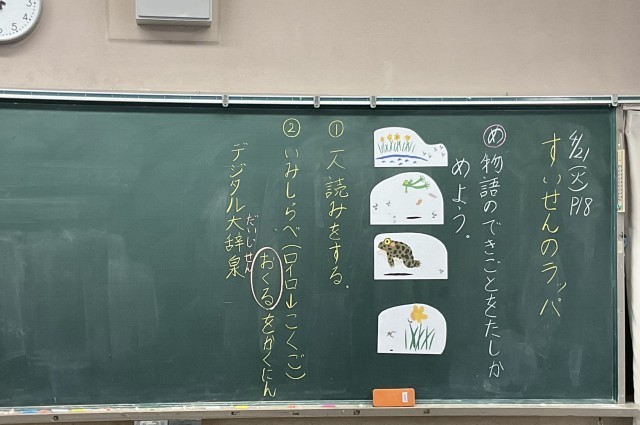 4/21(火) P18
すいせんのラッパ
め 物語のできごとをたしか
めよう。
① 一人読みをする。
② いみしらべ(ロイロ→こくご)
おくるをかくにん
だいじせん
デジタル大辞泉